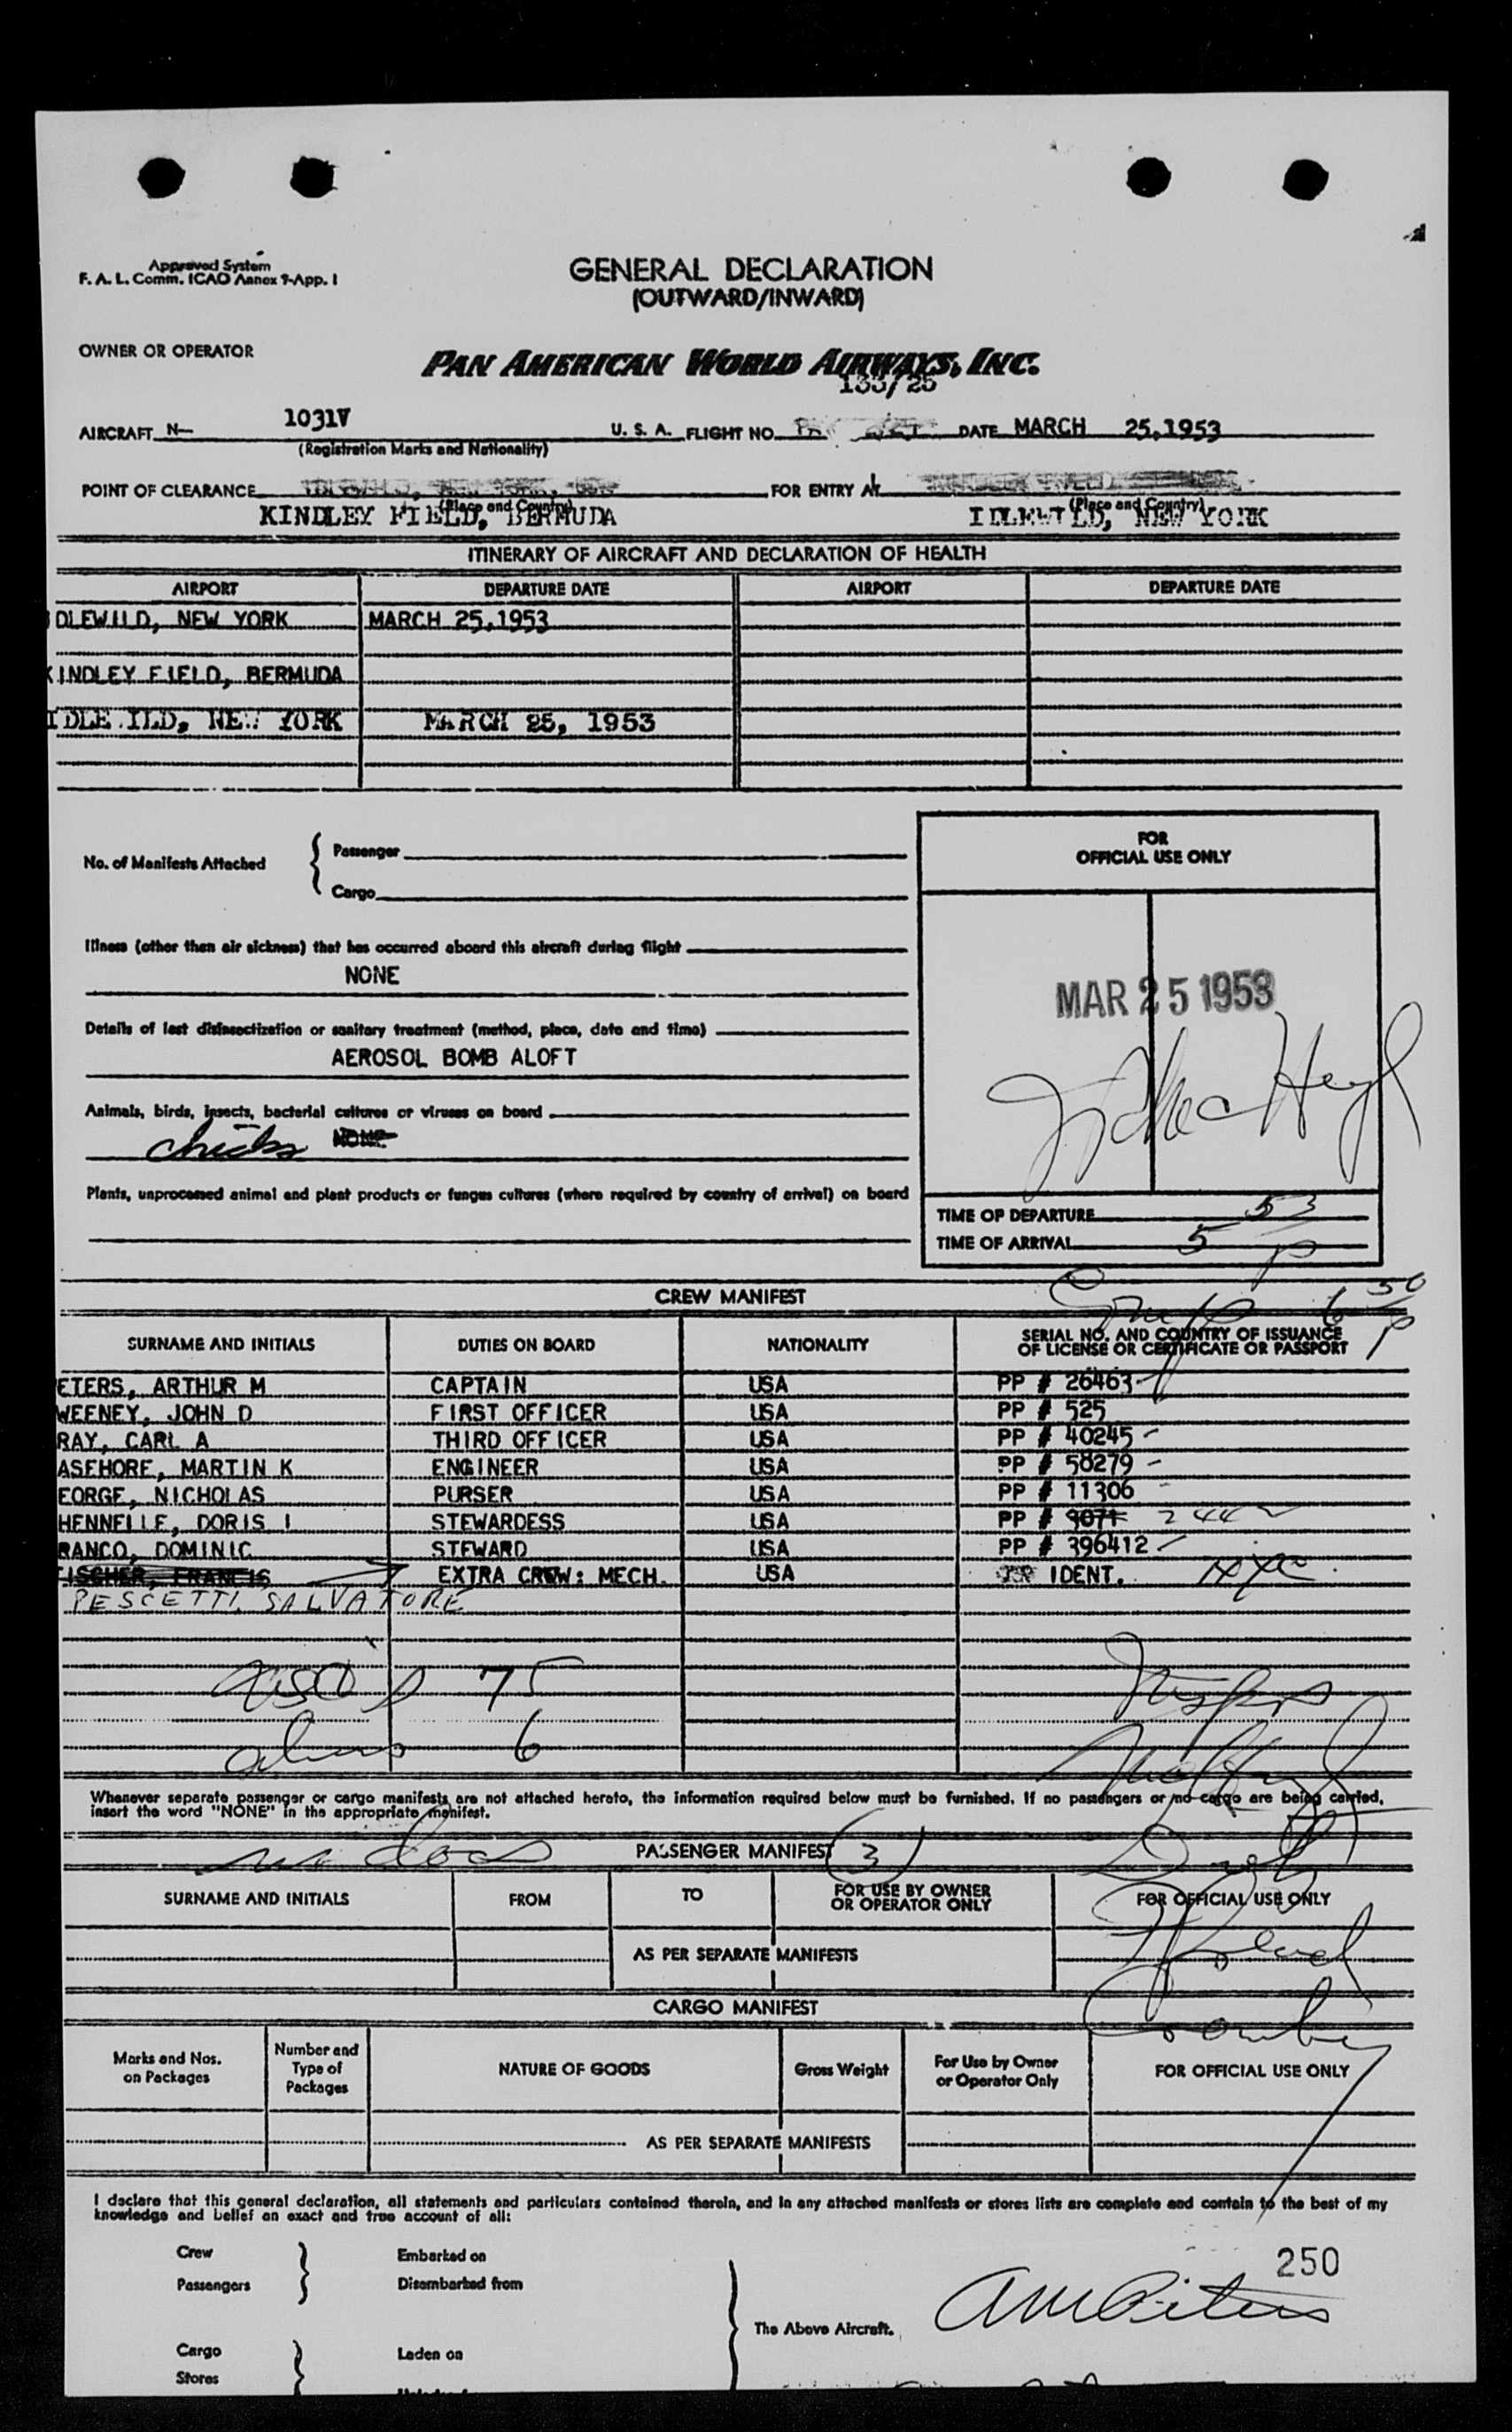 Approved System
F. A. L. Comm. ICAO Annex 9-App. I
GENERAL DECLARATION
(OUTWARD/INWARD)
OWNER OR OPERATOR
PAN AMERICAN WORLD AIRWAYS, INC.
133/25
AIRCRAFT N- 1031V U. S. A. FLIGHT NO. DATE MARCH 25,1953
(Registration Marks and Nationality)
POINT OF CLEARANCE FOR ENTRY AT
(Place and Country) (Place and Country)
KINDLEY FIELD, BERMUDA IDLEWILD, NEW YORK
ITINERARY OF AIRCRAFT AND DECLARATION OF HEALTH
AIRPORT DEPARTURE DATE AIRPORT DEPARTURE DATE
DLEWILD, NEW YORK MARCH 25,1953
KINDLEY FIELD, BERMUDA
IDLE ILD, NEW YORK MARCH 25, 1953
No. of Manifests Attached
Passenger
Cargo
FOR
OFFICIAL USE ONLY
Illness (other than air sickness) that has occurred aboard this aircraft during flight
NONE
MAR 25 1953
Details of last disinsectization or sanitary treatment (method, place, date and time)
AEROSOL BOMB ALOFT
Animals, birds, insects, bacterial cultures or viruses on board
chicks NONE
Plants, unprocessed animal and plant products or fungus cultures (where required by country of arrival) on board
TIME OF DEPARTURE
TIME OF ARRIVAL 5 53 P
CREW MANIFEST
6 50 P
SURNAME AND INITIALS DUTIES ON BOARD NATIONALITY SERIAL NO. AND COUNTRY OF ISSUANCE
OF LICENSE OR CERTIFICATE OR PASSPORT
ETERS, ARTHUR M CAPTAIN USA PP # 26463
WEENEY, JOHN D FIRST OFFICER USA PP # 525
RAY, CARL A THIRD OFFICER USA PP # 40245
ASEHORE, MARTIN K ENGINEER USA PP # 58279
EORGE, NICHOLAS PURSER USA PP # 11306
HENNELLE, DORIS I STEWARDESS USA PP # 9071 244
RANCO, DOMINIC STEWARD USA PP # 396412
ISCHER, FRANCIS EXTRA CREW: MECH. USA IDENT.
PESCETTI, SALVATORE
75
aliens 6
Whenever separate passenger or cargo manifests are not attached hereto, the information required below must be furnished. If no passengers or no cargo are being carried,
insert the word "NONE" in the appropriate manifest.
no docs PASSENGER MANIFEST (3)
SURNAME AND INITIALS FROM TO FOR USE BY OWNER
OR OPERATOR ONLY FOR OFFICIAL USE ONLY
AS PER SEPARATE MANIFESTS
CARGO MANIFEST
Marks and Nos.
on Packages
Number and
Type of
Packages
NATURE OF GOODS Gross Weight For Use by Owner
or Operator Only FOR OFFICIAL USE ONLY
AS PER SEPARATE MANIFESTS
I declare that this general declaration, all statements and particulars contained therein, and in any attached manifests or stores lists are complete and contain to the best of my
knowledge and belief an exact and true account of all:
Crew Embarked on
Passengers Disembarked from
250
The Above Aircraft. AM Peters
Cargo Laden on
Stores